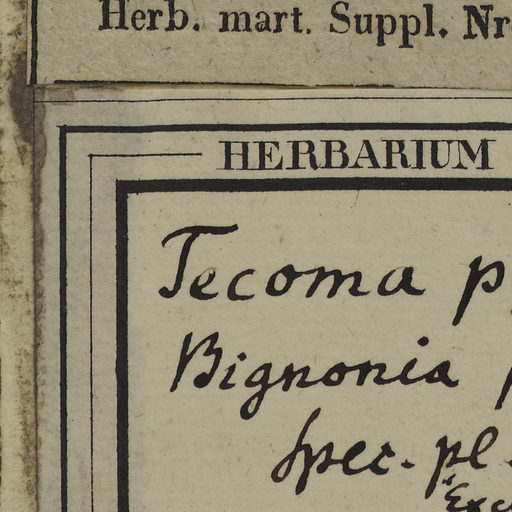 Herb. mart. Suppl. Nr
HERBARIUM
Tecoma p
Bignonia p
Spec. pl.
Exc